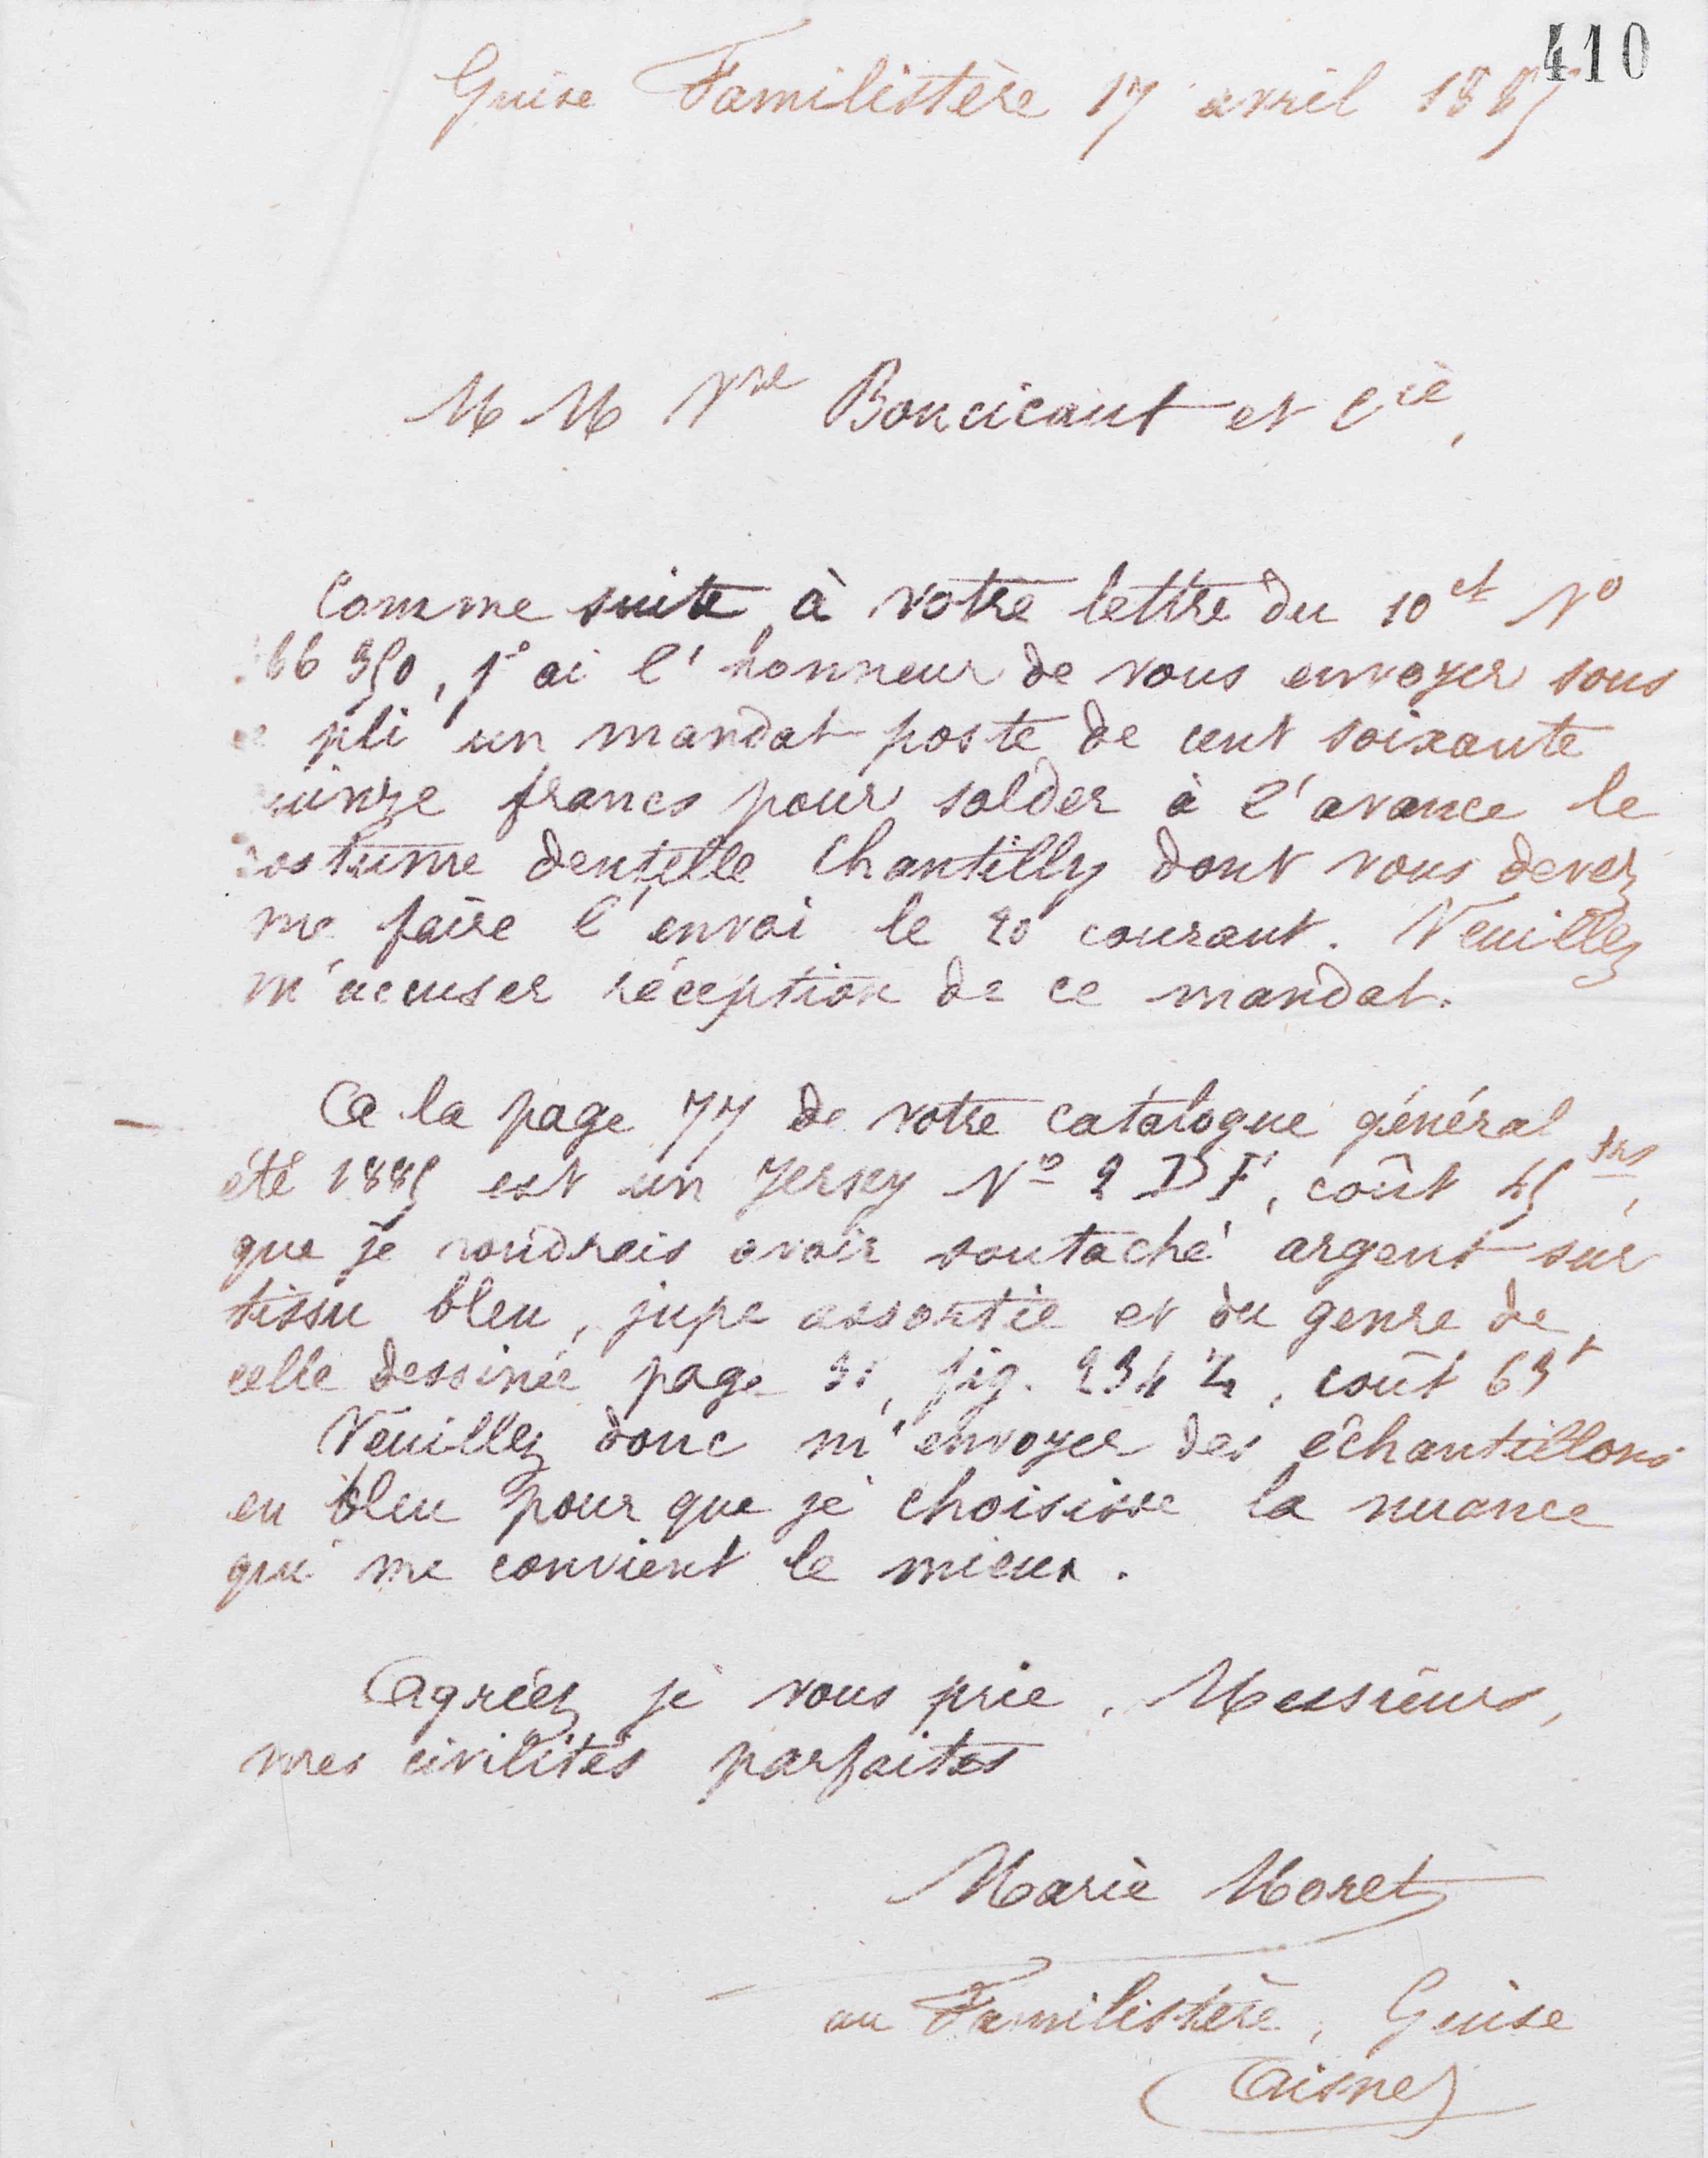 410
Guise Familistère 17 avril 1885
MM Vve Boucicaut et Cie,
Comme suite à votre lettre du 10 ct No
66 350, j'ai l'honneur de vous envoyer sous
pli un mandat-poste de cent soixante
quinze francs pour solder à l'avance le
costume dentelle Chantilly dont vous devez
me faire l'envoi le 20 courant. Veuillez
m'accuser réception de ce mandat.
A la page 77 de votre catalogue général
été 1885 est un Jersey No 2 DF, coût 45 frs,
que je voudrais avoir soutaché argent sur
tissu bleu, jupe assortie et du genre de
celle dessinée page fig. 234 coût 63 f
Veuillez donc m'envoyer des échantillons
en bleu pour que je choisisse la nuance
qui me convient le mieux.
Agréez je vous prie, Messieurs,
mes civilités parfaites
Marie Moret
au Familistère, Guise
(Aisne)